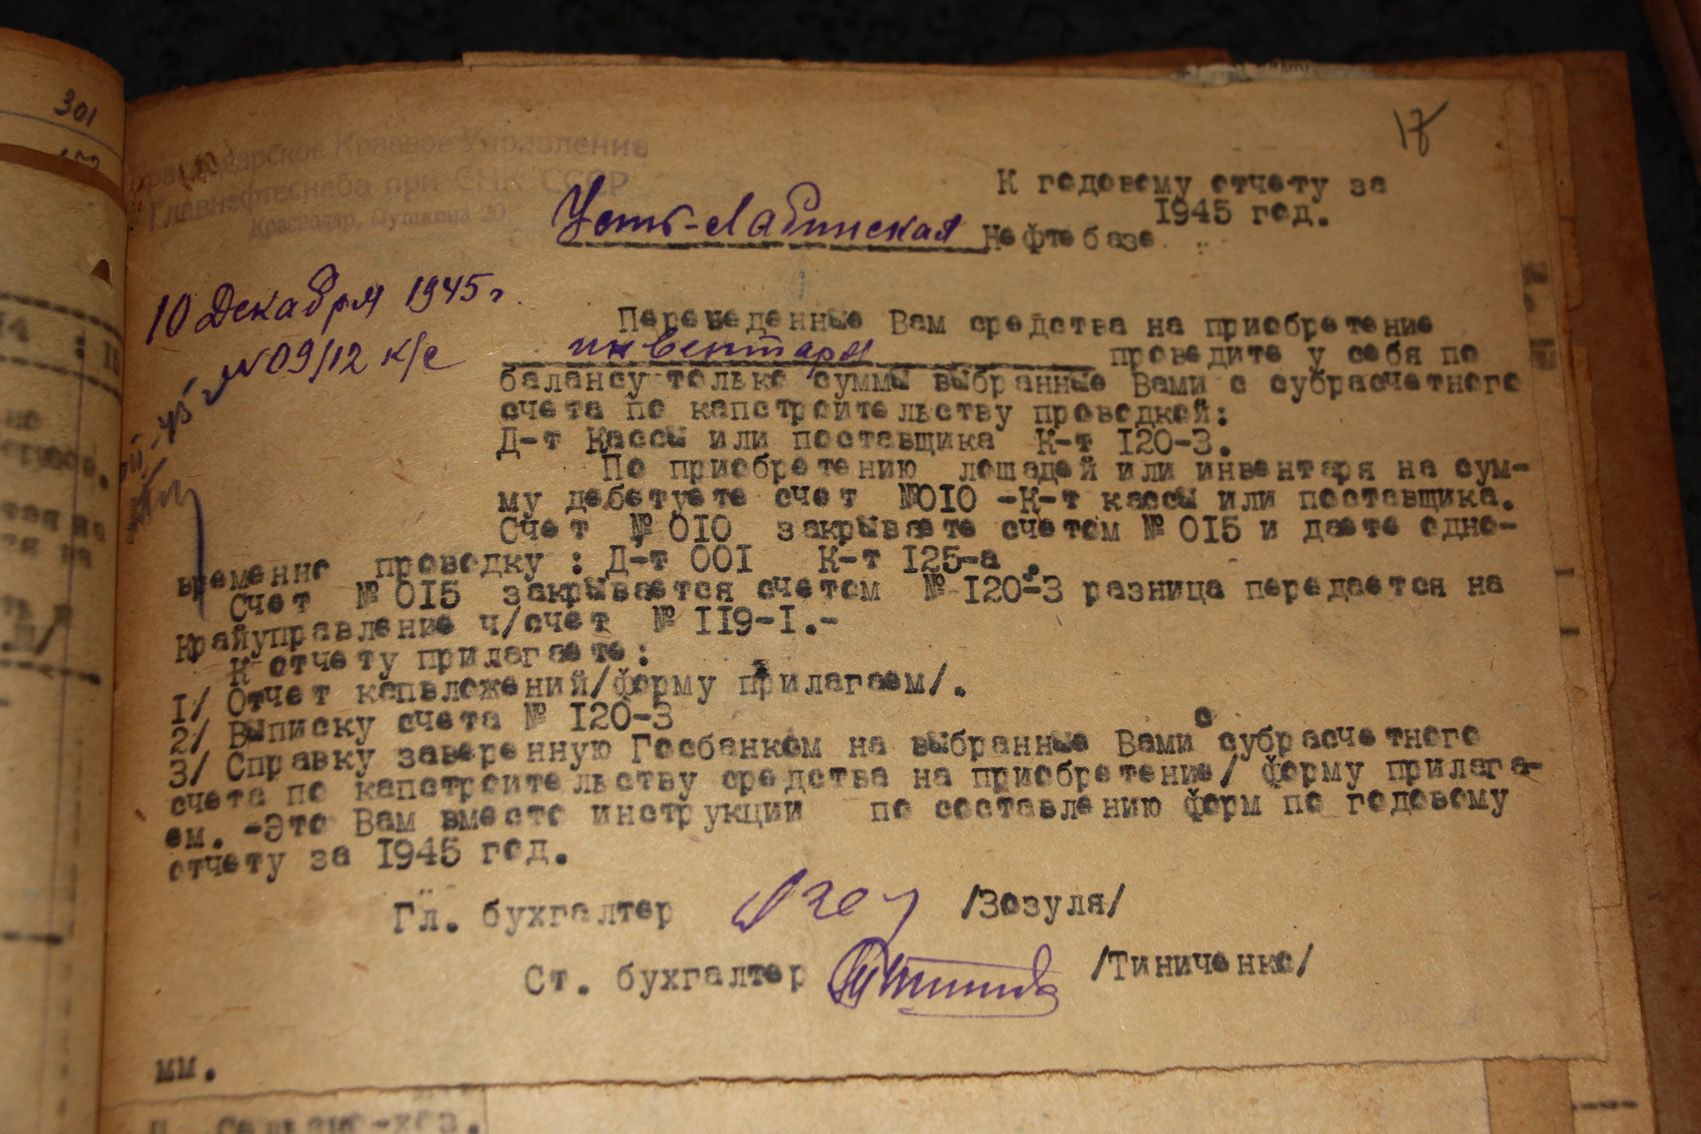 301
17
Краснодарское Краевое Управление
Главнефтеснаба при СНК СССР
Краснодар, Пушкина 20
К годовому отчету за
1945 год.
Усть-Лабинская Нефтебазе
10 Декабря 1945 г.
№ 09/12 к/с
Переведенные Вам средства на приобретение
инвентаря проведите у себя по
балансу только суммы выбранные Вами с субрасчетного
счета по капстроительству проводкой:
Д-т Кассы или поставщика К-т I20-3.
По приобретению лошадей или инвентаря на сум-
му дебетуете счет №0I0 -К-т кассы или поставщика.
Счет № 0I0 закрываете счетом № 0I5 и даете одно-
временно проводку : Д-т 00I К-т I25-а .
Счет № 0I5 закрывается счетом № I20-3 разница передается на
Крайуправление ч/счет № II9-I.-
К отчету прилагаете:
I/ Отчет капвложений/форму прилагаем/.
2/ Выписку счета № I20-3
3/ Справку заверенную Госбанком на выбранные Вами с субрасчетного
счета по капстроительству средства на приобретение/ форму прилага-
ем. -Это Вам вместо инструкции по составлению форм по годовому
отчету за I945 год.
Гл. бухгалтер /Зозуля/
Ст. бухгалтер /Тиниченко/
мм.